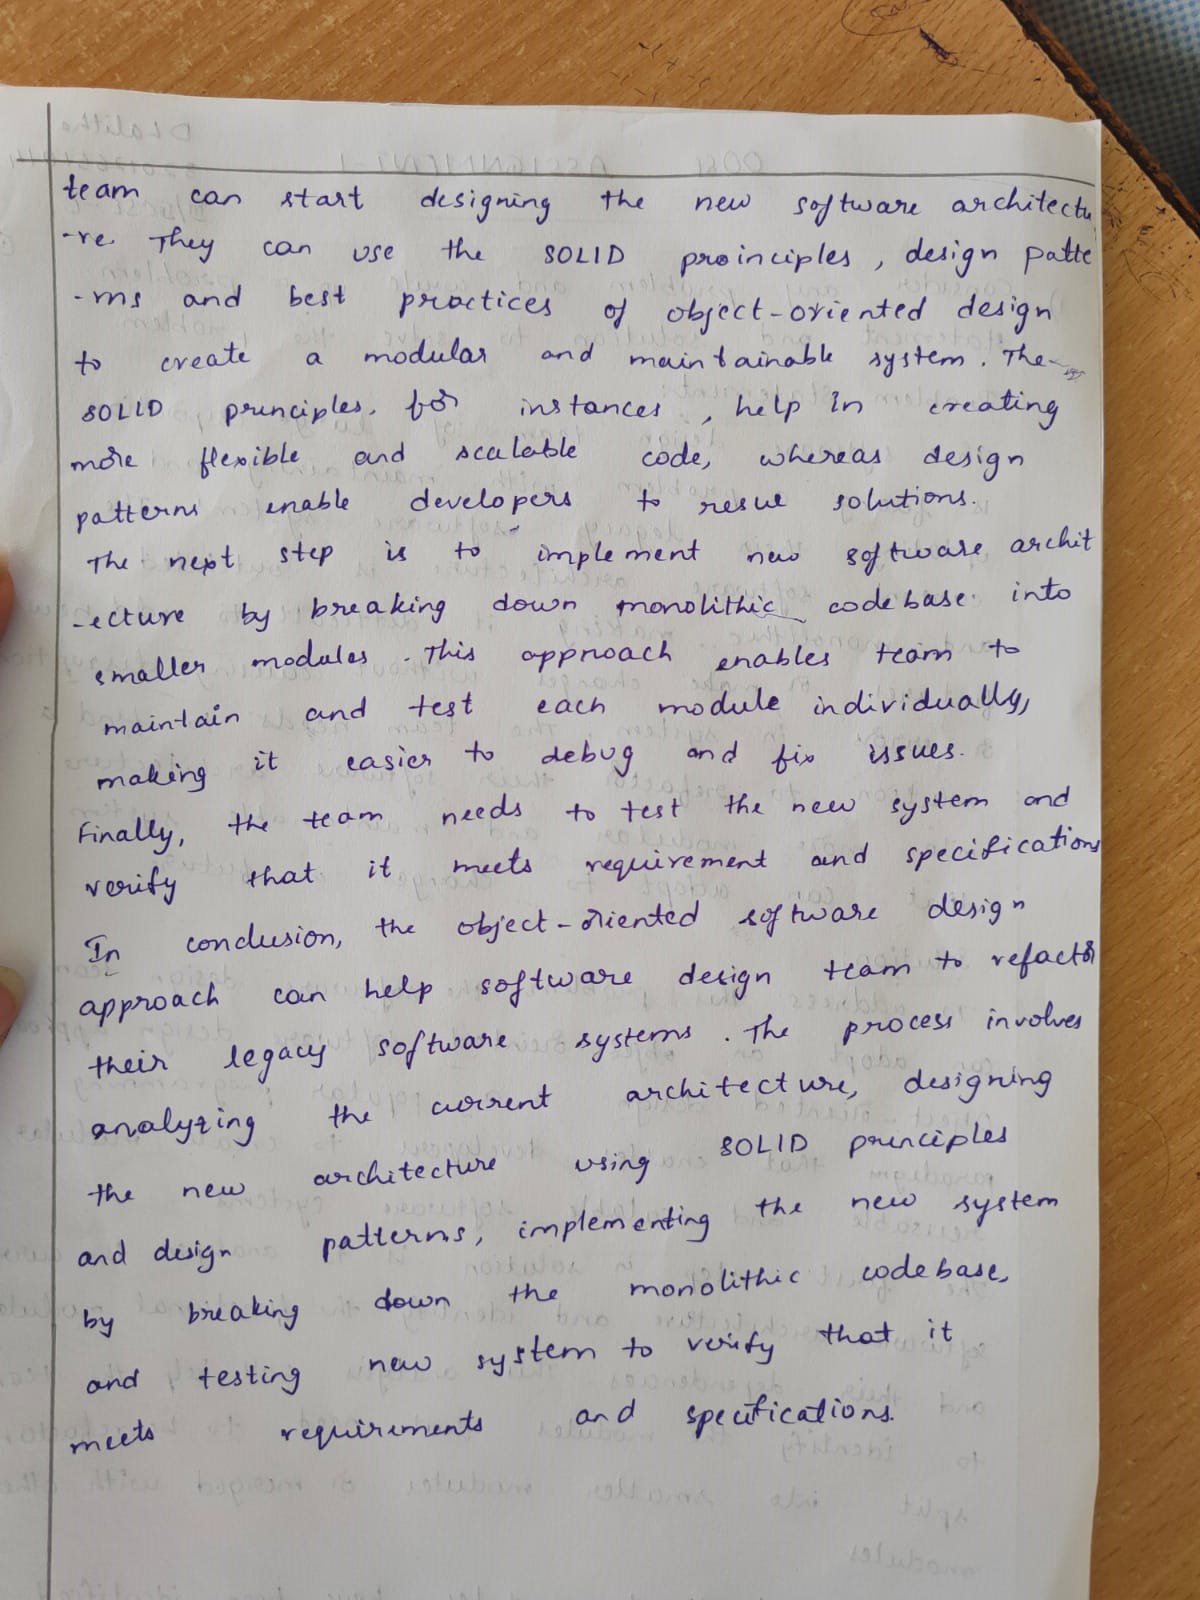 team can start designing the new software architectu
-re. They can use the SOLID proinciples, design patte
-rns and best practices of object-oriented design
to create a modular and maintainable system. The
SOLID principles. for instances, help in creating
more flexible and scalable code, whereas design
patterns enable developers to resue solutions.
The next step is to implement new software archit
-ecture by breaking down monolithic codebase into
smaller modules. This approach enables team to
maintain and test each module individually,
making it easier to debug and fix issues.
Finally, the team needs to test the new system and
verify that it meets requirement and specifications
In conclusion, the object-oriented software design
approach can help software design team to refactor
their legacy software systems. The process involves
analyzing the current architecture, designing
the new architecture using SOLID principles
and design patterns, implementing the new system
by breaking down the monolithic codebase,
and testing new system to verify that it
meets requirements and specifications.